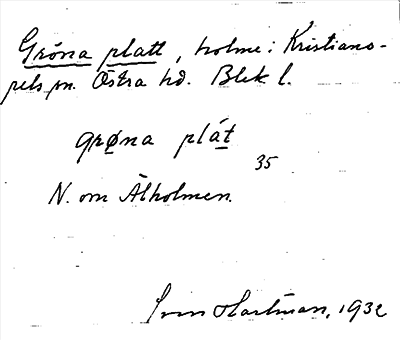 Gröna platt, holme i Kristiano-
pels sn. Östra hd. Blek l.
grøna plát
35
N. om Ålholmen.
Sven Hartman, 1932